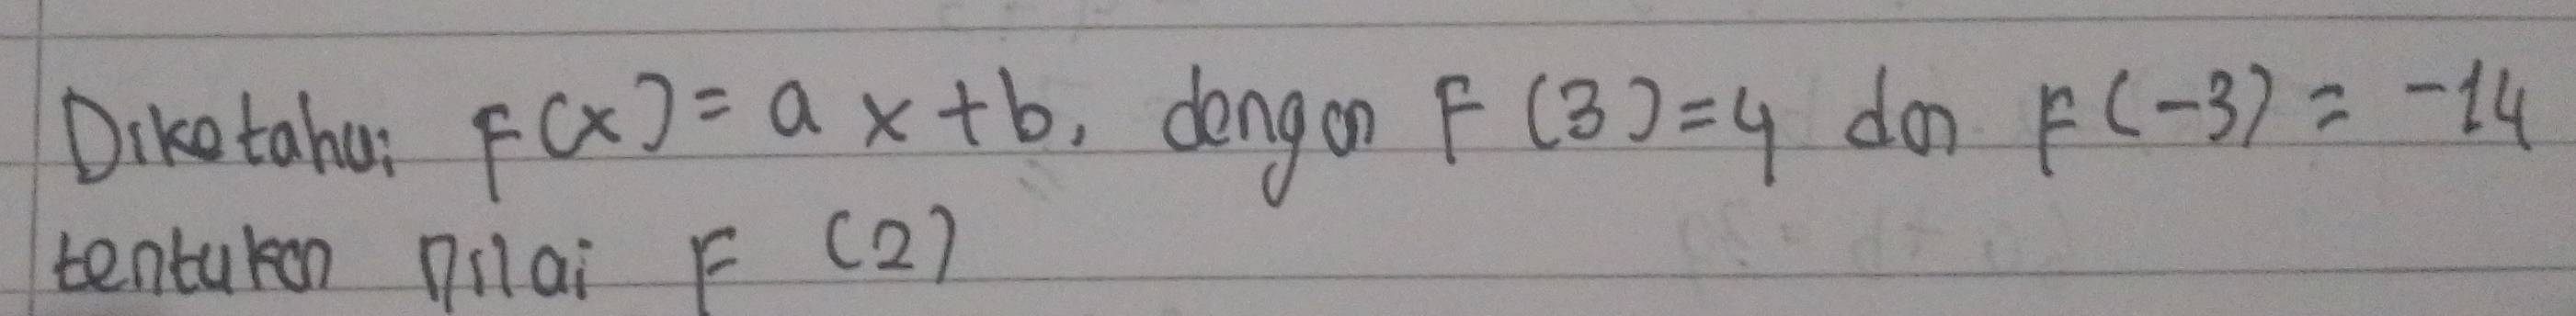 Diketahui F(x) = a x + b, dengan F (3) = 4 dan F (-3) = -14
tentukan nilai F (2)